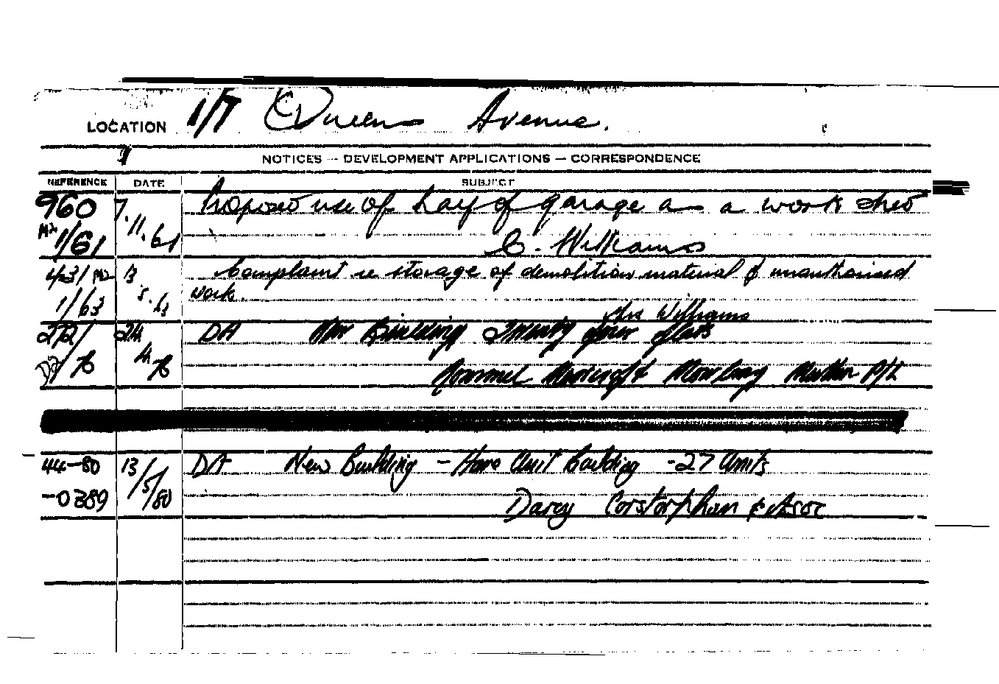 LOCATION 1/7 Queens Avenue.
NOTICES — DEVELOPMENT APPLICATIONS — CORRESPONDENCE
REFERENCE DATE SUBJECT
960 7.11.61 Proposed use of half of garage as a work shed
1/61 C. Williams
423/ 13 Complaint re storage of demolition material & unauthorised
1/63 work.
Mrs Williams
272/ 24 DA New Building Twenty four flats
76 4 76 P/L
44-80 13/5/80 DA New Building - Home Unit Building - 27 Units
-0389 Darcy Corstorphan & Assoc